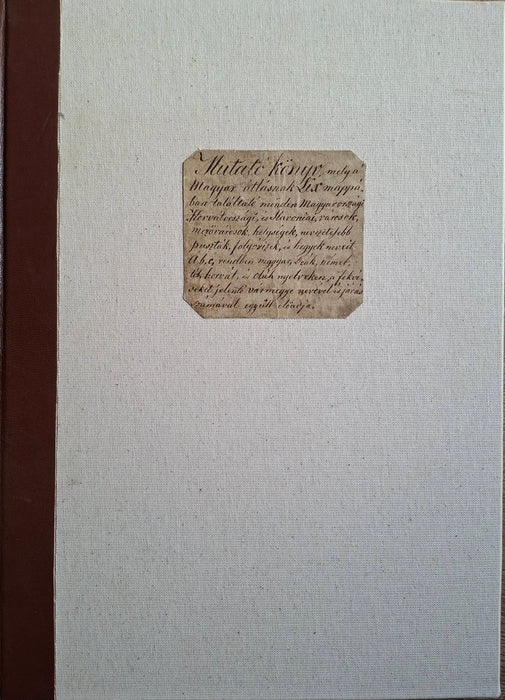 Mutató könyv, mely a'
Magyar Atlásnak Lix mappá-
ban találtató minden Magyarországi
Horvátországi, és Slavoniai, városok,
mezővárosok, helységek, nevezetesebb
puszták, folyóvizek, és hegyek neveit
A, b, c, rendben magyar, deák, német,
tót, horvát, és oláh nyelveken, a' fekvé-
seket jelentő vármegye nevével és járás
számával együtt előadja.